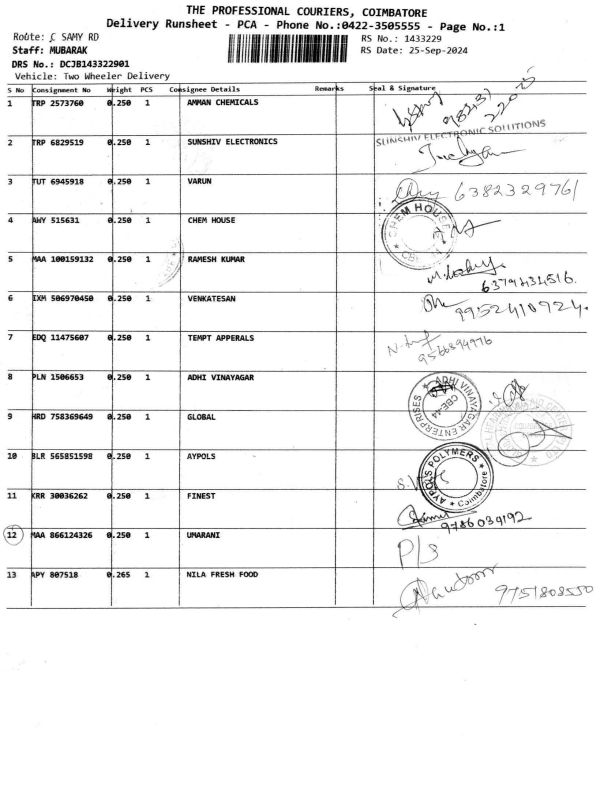 THE PROFESSIONAL COURIERS, COIMBATORE
Delivery Runsheet - PCA - Phone No.:0422-3505555 - Page No.:1
Route: C SAMY RD
RS No.: 1433229
Staff: MUBARAK
RS Date: 25-Sep-2024
DRS No.: DCJB143322901
Vehicle: Two Wheeler Delivery
S No Consignment No Weight PCS Consignee Details Remarks Seal & Signature
1 TRP 2573760 0.250 1 AMMAN CHEMICALS
2 TRP 6829519 0.250 1 SUNSHIV ELECTRONICS SUNSHIV ELECTRONIC SOLUTIONS
3 TUT 6945918 0.250 1 VARUN 6382329761
4 AWY 515631 0.250 1 CHEM HOUSE CHEM HOUSE
5 MAA 100159132 0.250 1 RAMESH KUMAR
6379434516.
6 IXM 506970450 0.250 1 VENKATESAN 9952410924.
7 EDQ 11475607 0.250 1 TEMPT APPERALS
9566394976
8 PLN 1506653 0.250 1 ADHI VINAYAGAR ADHI VINAYAGAR ENTERPRISES CBE-44
9 HRD 758369649 0.250 1 GLOBAL
10 BLR 565851598 0.250 1 AYPOLS AYPOLS POLYMERS Coimbatore
11 KRR 30036262 0.250 1 FINEST
9786039192
12 MAA 866124326 0.250 1 UMARANI P/S
13 APY 807518 0.265 1 NILA FRESH FOOD 9751808550